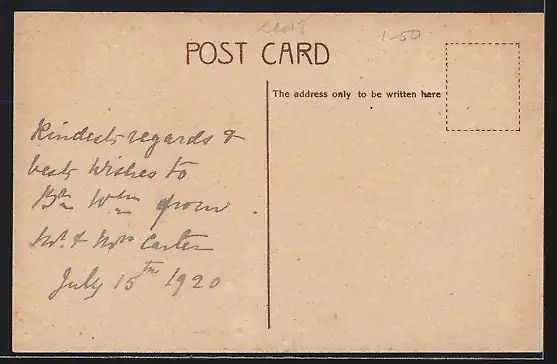 1-50
POST CARD
The address only to be written here
Kindest regards &
best wishes to
from
Mr. & Mrs Carter
July 15th 1920